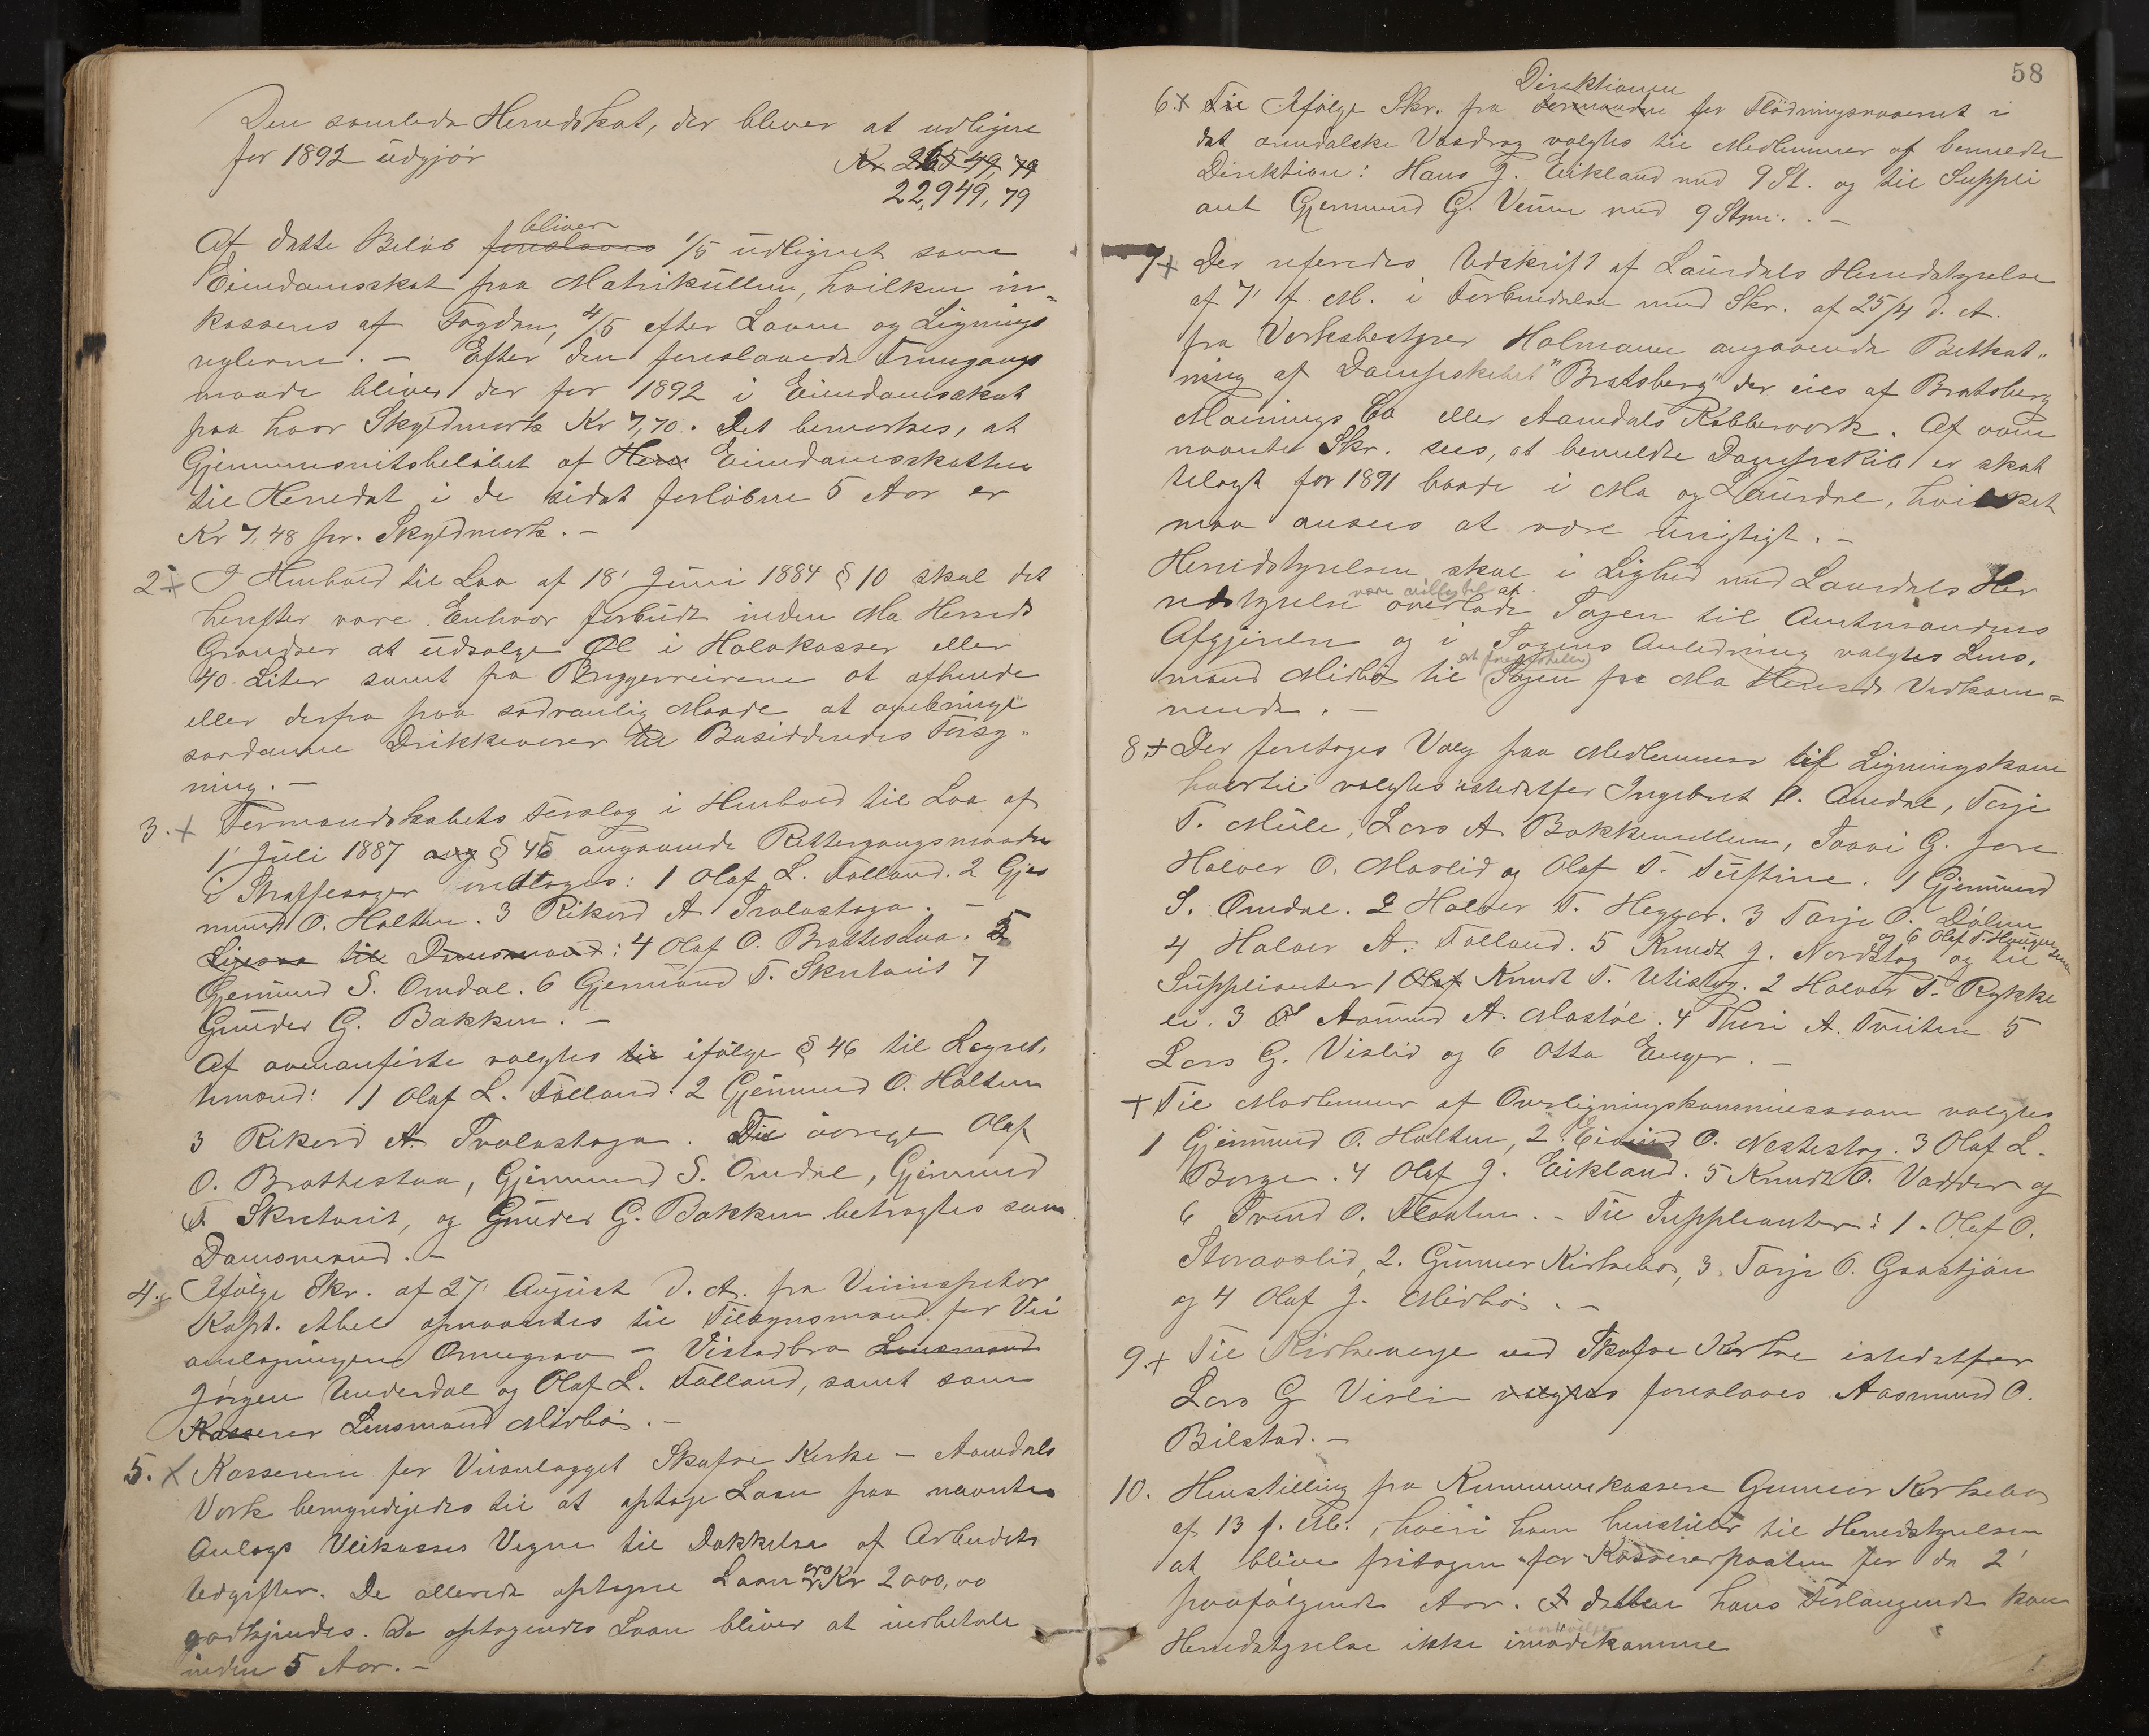 Den samlede Herredskat, der bliver at udligne
for 1892 udgjør Kr 26549,79
22,949,79
bliver
Af dette Beløb foreslaaes 1/5 udlignet som
Eiendomsskat paa Matrikullen, hvilken in-
kasseres af Fogden, 4/5 efter Loven og Lignings
reglerne. - Efter den foreslaaede Fremgangs
maade bliver der for 1892 i Eiendomsskat
paa hver Skyldmark Kr 7,70. Det bemærkes, at
Gjennemsnitsbeløbet af Herr Eiendomsskatten
til Herredet i de sidst forløbne 5 Aar er
Kr 7,48 pr. Skyldmark. -
2 + I Henhold til Lov af 18' Juni 1884 § 10 skal det
herefter være Enhver forbudt inden Mo Herreds
Grændser at udsælge Øl i Halvkasser eller
40 Liter samt fra Bryggerierne at afhende
eller derfra paa sædvanlig Maade at ombringe
saadanne Drikkevarer til Bosiddendes Forsy-
ning. -
3. + Formandskabets Forslag i Henhold til Lov af
1' Juli 1887 ang § 45 angaaende Rettergangsmaaden
i Straffesager vedtoges: 1 Olaf L. Folland. 2 Gjer
mund O. Holten. 3 Rikard A Tvelastoga. -
Ligesaa til Domsmænd: 4 Olaf O. Brattestaa. 5
Gjermund S. Omdal. 6 Gjermund T. Skreturit 7
Gunder G. Bakken. -
Af ovenanførte valgtes til ifølge § 46 til Lagret-
temænd: 1 Olaf L. Folland. 2 Gjermund O. Holten
3 Rikard A. Tvelastoga. De øvrige Olaf
O. Brattestaa, Gjermund S. Omdal, Gjermund
T. Skreturit, og Gunder G. Bakken betragtes som
Domsmænd. -
4. + Ifølge Skr. af 27' August d. A. fra Veiinspektør
Kapt. Abel opnævntes til Tilsynsmænd for Vei
anlægningen Ormegrav - Vistadbro Lensmand
Jørgen Underdal og Olaf L. Folland, samt som
Kasserer Lensmand Midbø. -
5. + Kassereren for Veianlægget Skafse Kirke - Aamdals
Værk bemyndigedes til at optage Laan paa nævnte
Anlægs Veikasses Vegne til Dækkelse af Arbeidets
Udgifter. De allerede optagne Laan ero Kr 2000,00
godkjendes. De optagendes Laan bliver at indbetale
inden 5 Aar. -
58
Direktionen
6. + Til Ifølge Skr. fra Formanden for Flødningsvæsenet i
det arendalske Vasdrag valgtes til Medlemmer af bemeldte
Direktion: Hans J. Eikland med 9 St. og til Suppli
ant Gjermund G. Venm med 9 Stmr. -
7 + Der refereredes Udskrift af Laurdals Herredstyrelse
af 7' f. M. i Forbindelse med Skr. af 25/4 d. A.
fra Værksbestyrer Holmann angaaende Beskat-
ning af Dampskibet "Bratsberg" der eies af Bratsberg
Mainings Co eller Aamdals Kobberværk. Af oven
nævnte Skr. sees, at bemeldte Dampskib er skat
telagt for 1891 baade i Mo og Laurdal, hvilket
maa ansees at være urigtigt. -
Herredstyrelsen skal i Lighed med Laurdals Her
være villig til at
redstyrelse overlade Sagen til Amtmandens
Afgjørelse og i Sagens Anledning valgtes Lens-
at fremstille
mand Midbø til Sagen fra Mo Herreds Vedkom-
mende. -
8. + Der foretoges Valg paa Medlemmer til Ligningskom
hvortil valgtes istedetfor Ingebret O. Omdal, Torje
T. Mule, Lars A Bakkemellem, Taavi G. Jore
Halvor O. Moslid og Olaf T. Tuftine. 1 Gjermund
S. Omdal. 2 Halvor T. Heggor. 3 Torje O. Dølen
og 6 Olaf T. Haugens
4 Halvor A. Folland. 5 Knudt J. Nordstog og til
Supplianter 1 Olaf Knudt T. Utistog. 2 Halvor T. Rykke
li. 3 Ol Aamund A. Mostøl. 4 Theri A. Tveiten 5
Lars G. Vislid og 6 Otto Enger. -
+ Til Medlemmer af Overligningskommissionen valgtes
1 Gjermund O. Holten, 2. Eivind O. Nestestog. 3 Olaf L.
Borge. 4 Olaf J. Eikland. 5 Knudt O. Vadder og
6 Svend O. Floaten. - Til Supplianter: 1. Olaf O.
Storaaslid, 2. Gunner Kirkebø, 3. Torje O. Gaastjøn
og 4 Olaf J. Midbø. -
9. + Til Kirkeverge ved Skafse Kirke istedetfor
Lars G Vislie valgtes foreslaaes Aasmund O.
Bilstad. -
10. Henstilling fra Kommunekasserer Gunner Kirkebø
af 13 f. M., hvori han henstiller til Herredstyrelsen
at blive fritagen for Kassererposten for de 2'
paafølgende Aar. I dette hans Forlangende kan
Herredstyrelse ikke imødekomme